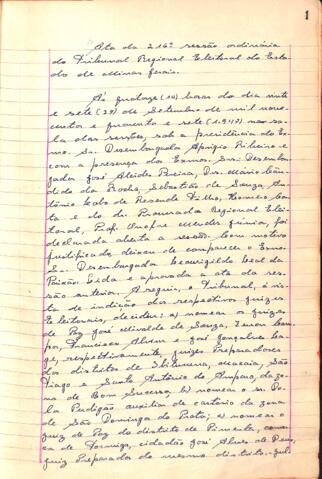 1
Ata da 216ª sessão ordinária
do Tribunal Regional Eleitoral do Esta-
do de Minas Gerais.
Às quatorze (14) horas do dia vinte
e sete (27) de Setembro de mil nove-
centos e quarenta e sete (1.947) na sa-
la das sessões, sob a presidência do Ex-
mo. Sr. Desembargador Aprigio Ribeiro e
com a presença dos Exmos. Srs. Desembar-
gador José Alcides Pereira, Drs. Mário Cân-
dido da Rocha, Sebastião de Souza, An-
tônio Leão de Resende Filho,
e do dr. Procurador Regional Elei-
toral, Prof. Onofre Mendes Júnior, foi
declarada aberta a sessão. Com motivo
justificado, deixou de comparecer o Exmo.
Sr. Desembargador Leovigildo Leal da
Paixão. Lida e aprovada a ata da ses-
são anterior. A seguir, o Tribunal, à vis-
ta de indicação dos respectivos juizes
Eleitorais, decidiu: a) nomear os juizes
de Paz José Nivaldo de Souza,
Francisco Alvim e José Gonçalves
respectivamente, juizes Preparadores
dos distritos de Ibituruna, Macaia, São
Tiago e Santo Antônio do Amparo, da zo-
na de Bom Sucesso; b) nomear o sr.
Perdigão auxiliar de cartório da zona
de São Domingos do Prata; c) nomear o
juiz de Paz do distrito de Pimenta, comar-
ca de Formiga, cidadão José Alves de
juiz Preparador do mesmo distrito.